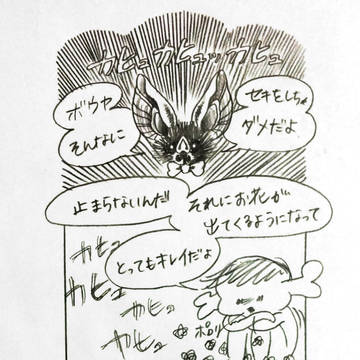 カヒュカヒュッカヒュ
ボウヤ
そんなに
セキをしちゃ
ダメだよ
止まらないんだ
それにお花が
出てくるようになって
とってもキレイだよ
カヒュ
カヒュ
カヒュ
カヒュ
ポロリ